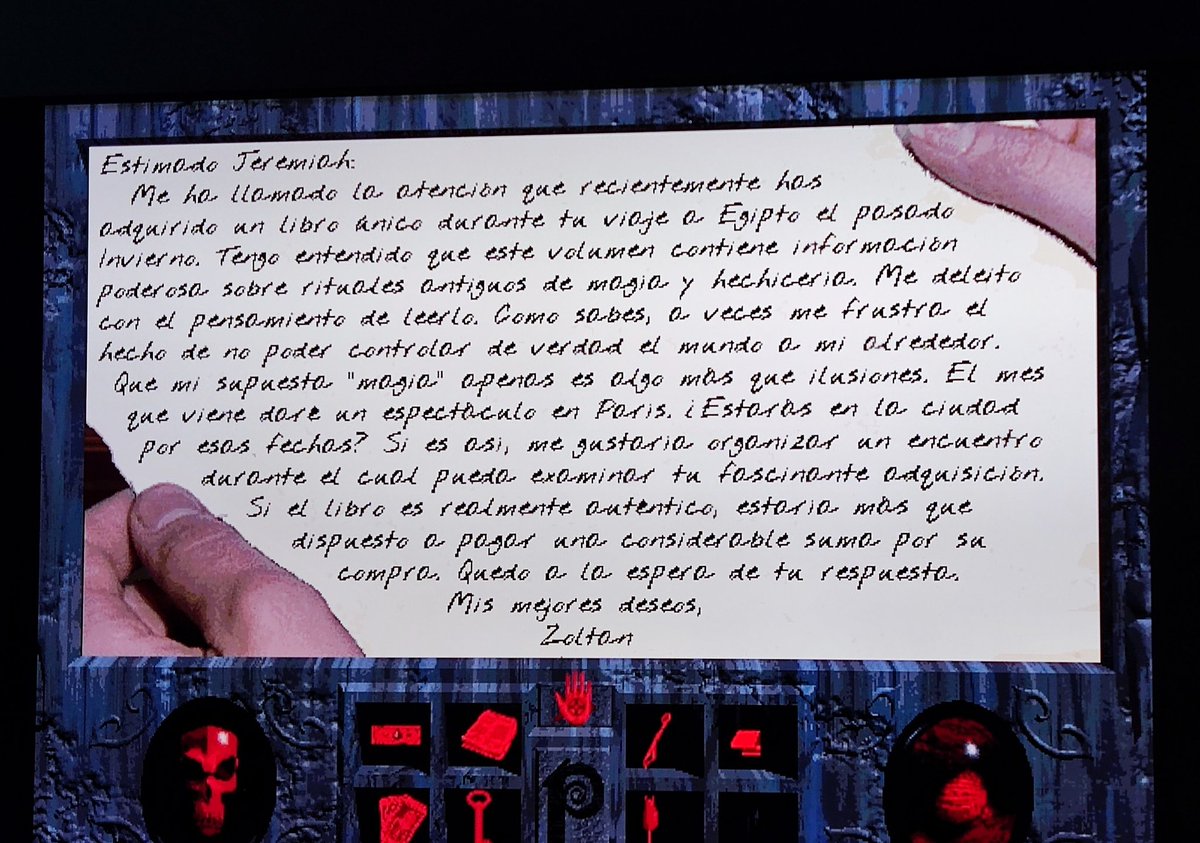 Estimado Jeremiah:
Me ha llamado la atención que recientemente has
adquirido un libro único durante tu viaje a Egipto el pasado
invierno. Tengo entendido que este volumen contiene información
poderosa sobre rituales antiguos de magia y hechicería. Me deleito
con el pensamiento de leerlo. Como sabes, a veces me frustra el
hecho de no poder controlar de verdad el mundo a mi alrededor.
Que mi supuesta "magia" apenas es algo más que ilusiones. El mes
que viene daré un espectáculo en París. ¿Estarás en la ciudad
por esas fechas? Si es así, me gustaría organizar un encuentro
durante el cual pueda examinar tu fascinante adquisición.
Si el libro es realmente auténtico, estaría más que
dispuesto a pagar una considerable suma por su
compra. Quedo a la espera de tu respuesta.
Mis mejores deseos,
Zoltan